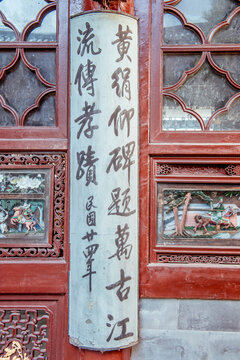 黃絹仰碑題萬古江
流傳孝蹟
民國廿四年